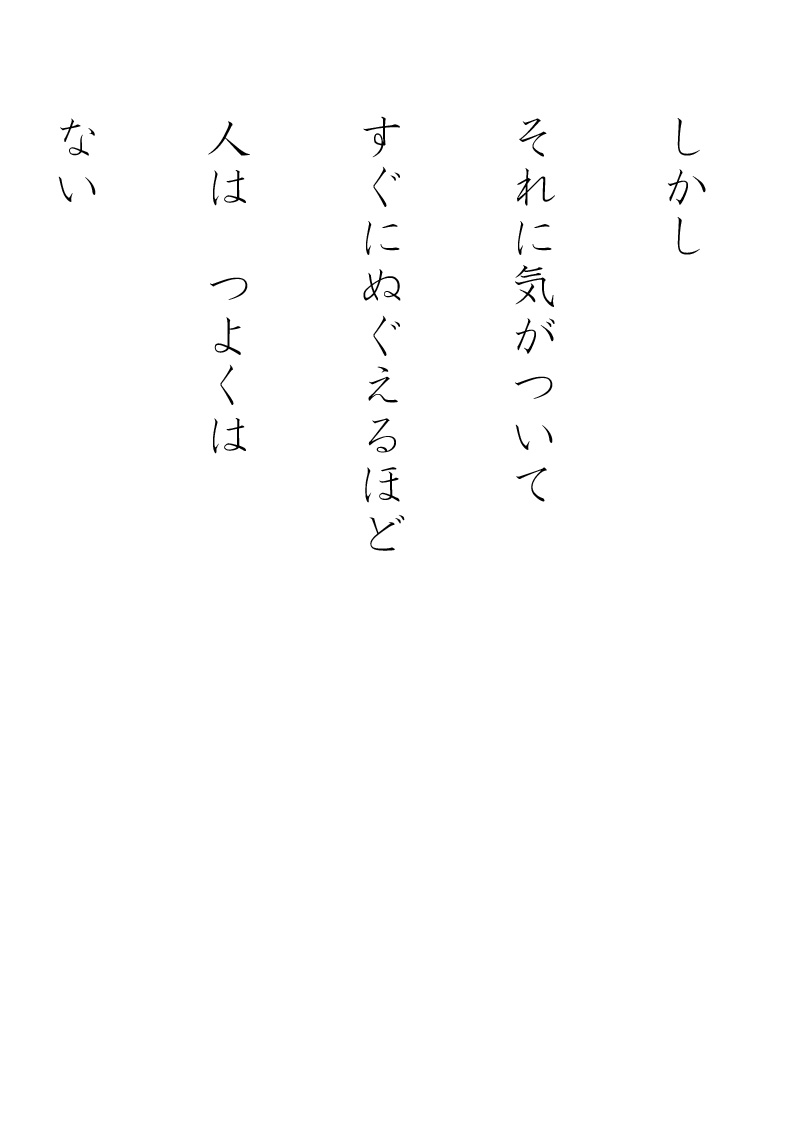 しかし
それに気がついて
すぐにぬぐえるほど
人は　つよくは
ない